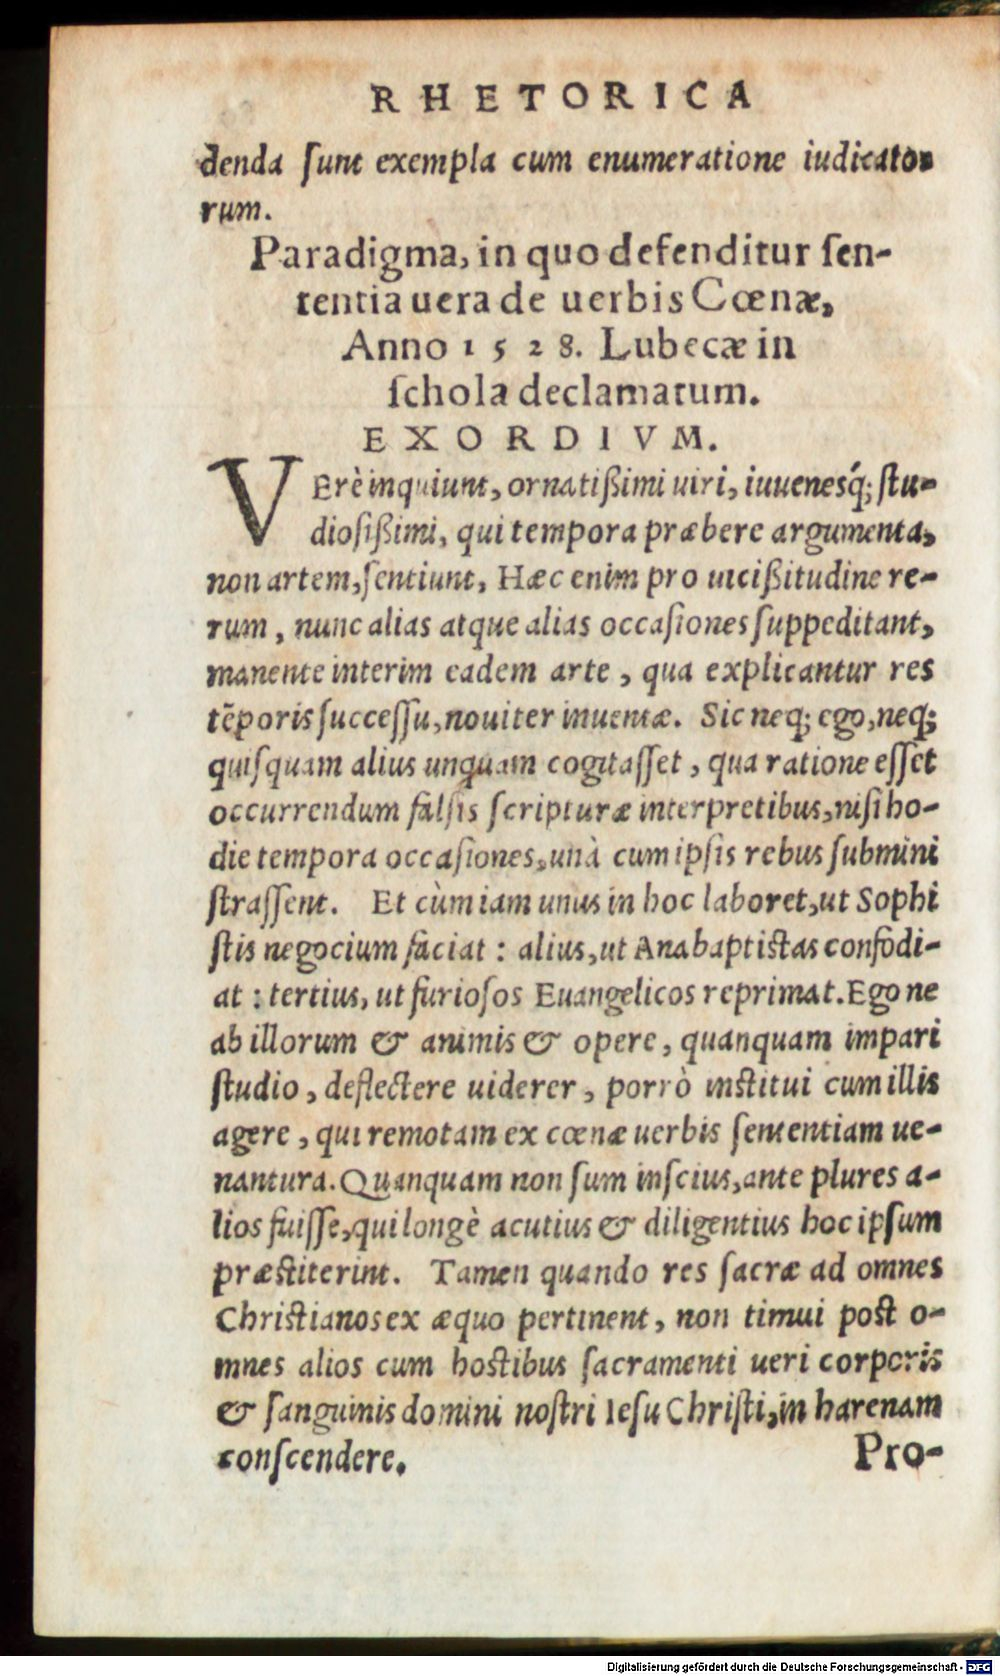 RHETORICA
denda ſunt exempla cum enumeratione iudicato-
rum.
Paradigma, in quo defenditur ſen-
tentia uera de uerbis Cœnæ,
Anno 1528. Lubecæ in
ſchola declamatum.
EXORDIVM.
VErè inquiunt, ornatißimi uiri, iuuenesq́; ſtu-
dioſißimi, qui tempora præbere argumenta,
non artem, ſentiunt, Hæc enim pro uicißitudine re-
rum, nunc alias atque alias occaſiones ſuppeditant,
manente interim eadem arte, qua explicantur res
tẽporis ſucceſſu, nouiter inuentæ. Sic neq; ego, neq;
quiſquam alius unquam cogitaſſet, qua ratione eſſet
occurrendum falſis ſcripturæ interpretibus, niſi ho-
die tempora occaſiones, unà cum ipſis rebus ſubmini
ſtraſſent. Et cùm iam unus in hoc laboret, ut Sophi
ſtis negocium faciat: alius, ut Anabaptiſtas confodi-
at: tertius, ut furioſos Euangelicos reprimat. Ego ne
ab illorum & animis & opere, quanquam impari
ſtudio, deflectere uiderer, porrò inſtitui cum illis
agere, qui remotam ex cœnæ uerbis ſententiam ue-
nantura. Quanquam non ſum inſcius, ante plures a-
lios fuiſſe, qui longè acutius & diligentius hoc ipſum
præſtiterint. Tamen quando res ſacræ ad omnes
Chriſtianos ex æquo pertinent, non timui poſt o-
mnes alios cum hoſtibus ſacramenti ueri corporis
& ſanguinis domini noſtri Ieſu Chriſti, in harenam
conſcendere.
Pro-
Digitalisierung gefördert durch die Deutsche Forschungsgemeinschaft - DFG